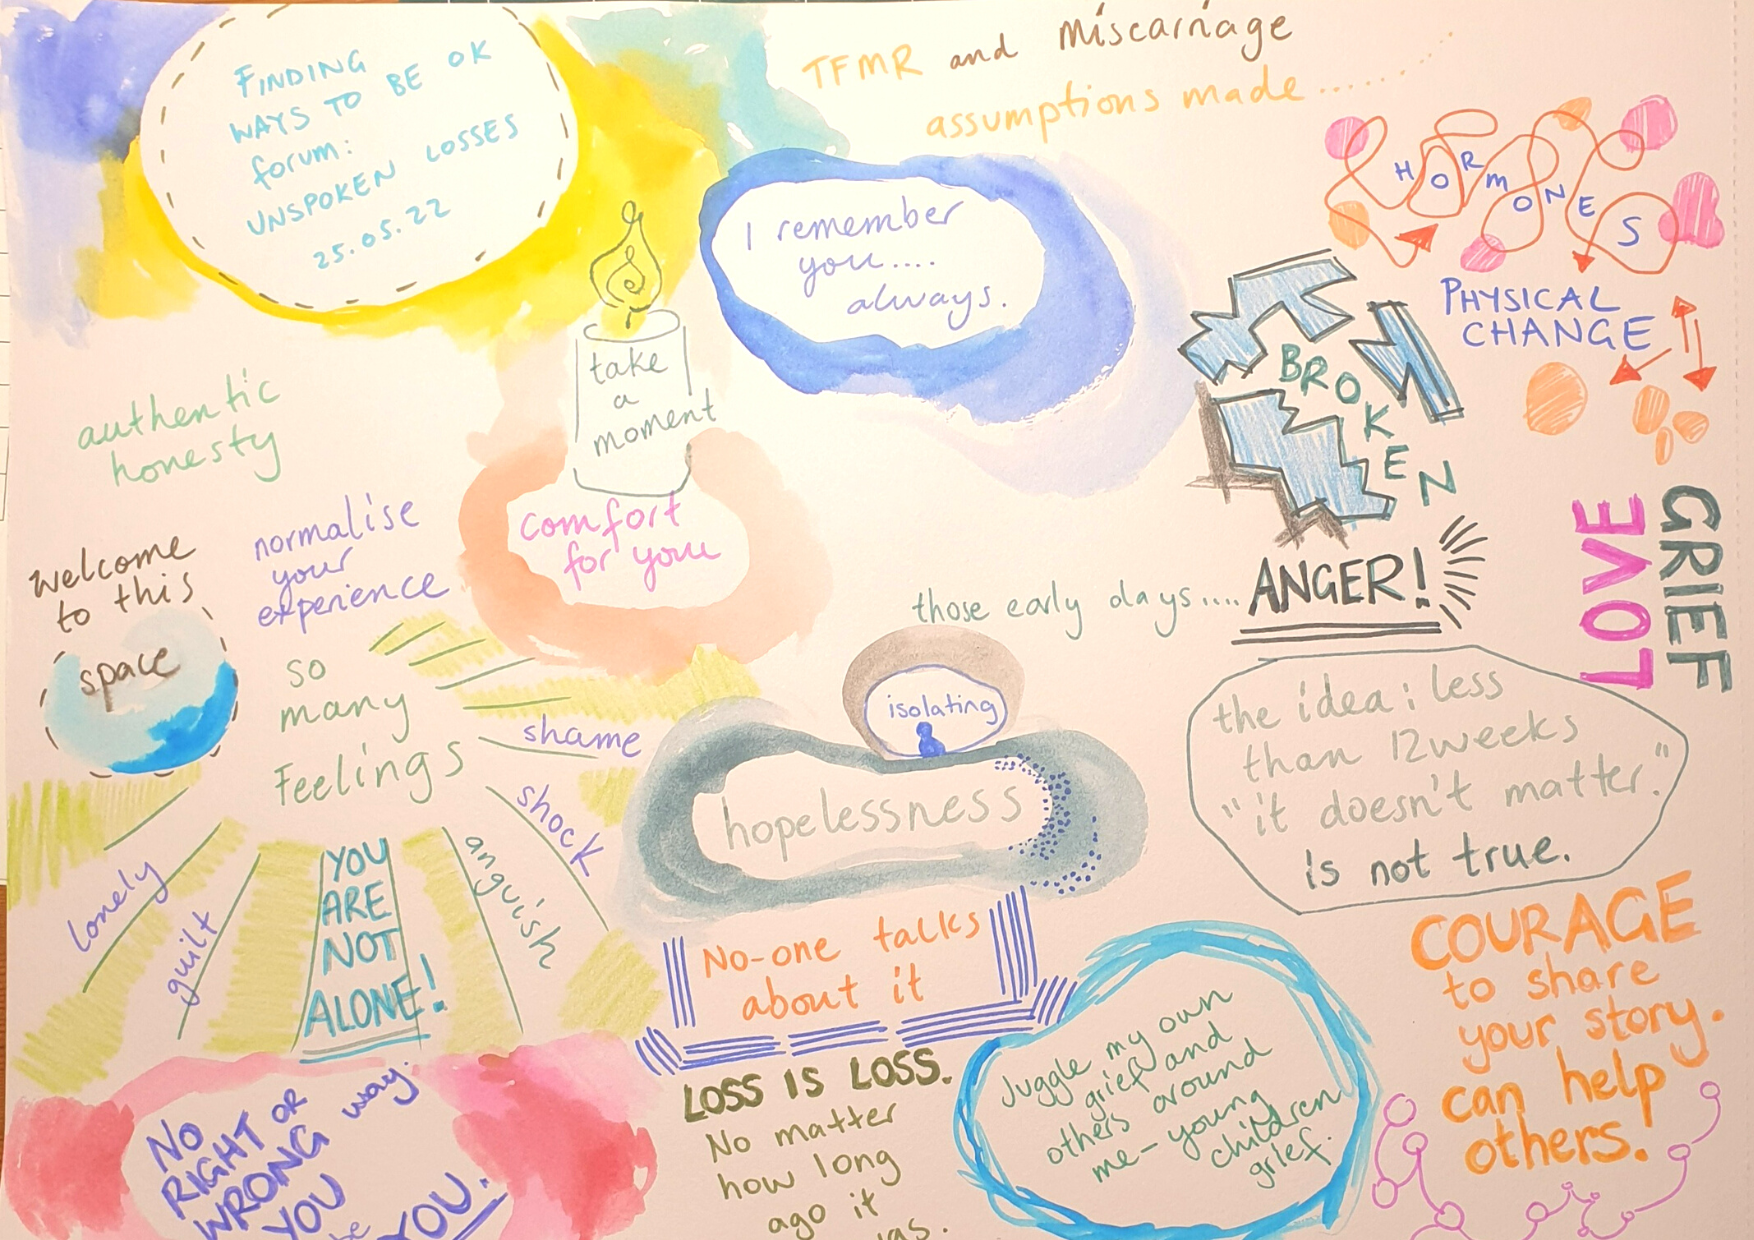 FINDING
WAYS TO BE OK
forum:
UNSPOKEN LOSSES
25.05.22
TFMR and miscarriage
assumptions made......
I remember
you....
always.
HORMONES
PHYSICAL
CHANGE
take
a
moment
comfort
for you
authentic
honesty
BROKEN
normalise
your
experience
welcome
to this
space
those early days.... ANGER!
LOVE
GRIEF
so
many
Feelings
shame
shock
anguish
YOU
ARE
NOT
ALONE!
guilt
lonely
isolating
hopelessness
the idea: less
than 12 weeks
"it doesn't matter."
is not true.
No-one talks
about it
COURAGE
to share
your story.
can help
others.
LOSS IS LOSS.
No matter
how long
ago it
Juggle my own
grief and
others around
me - young
children
grief.
NO
RIGHT OR
WRONG way.
YOU
be
YOU.